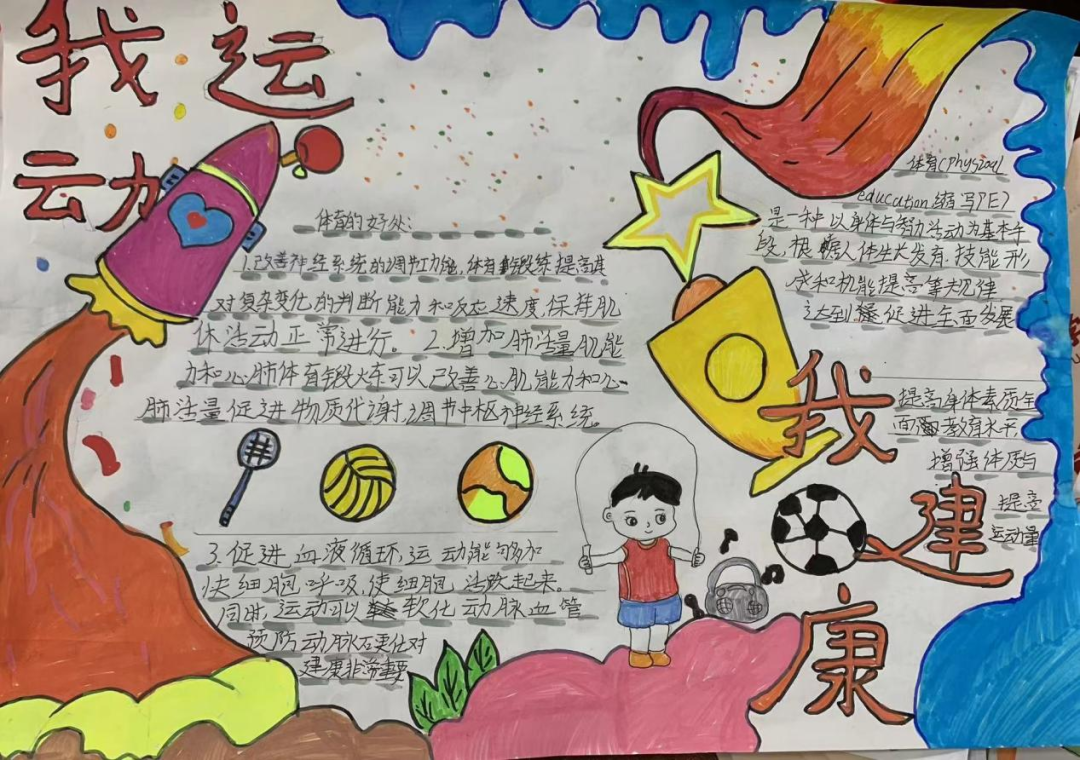 我运
动
体育的好处:
1.改善神经系统的调节功能,体育锻炼提高其
对复杂变化的判断能力和反应速度,保持肌
体活动正常进行。2.增加肺活量肌能
力和心肺体育锻火车可以改善心肌能力和心
肺活量促进物质代谢,调节中枢神经系统。
3.促进血液循环运动能够加
快细胞呼吸,使细胞活跃起来。
同时,运动可以软化动脉血管
预防动脉石更化对
建康非常重要
体育(physical
education缩写PE)
是一种以身体与智力活动为基本手
段,根据人体生长发育.技能形
成和机能提高等规律
达到促进全面发展
提高身体素质全
面教育水平,
增强体质与
提高
运动量
我
建
康